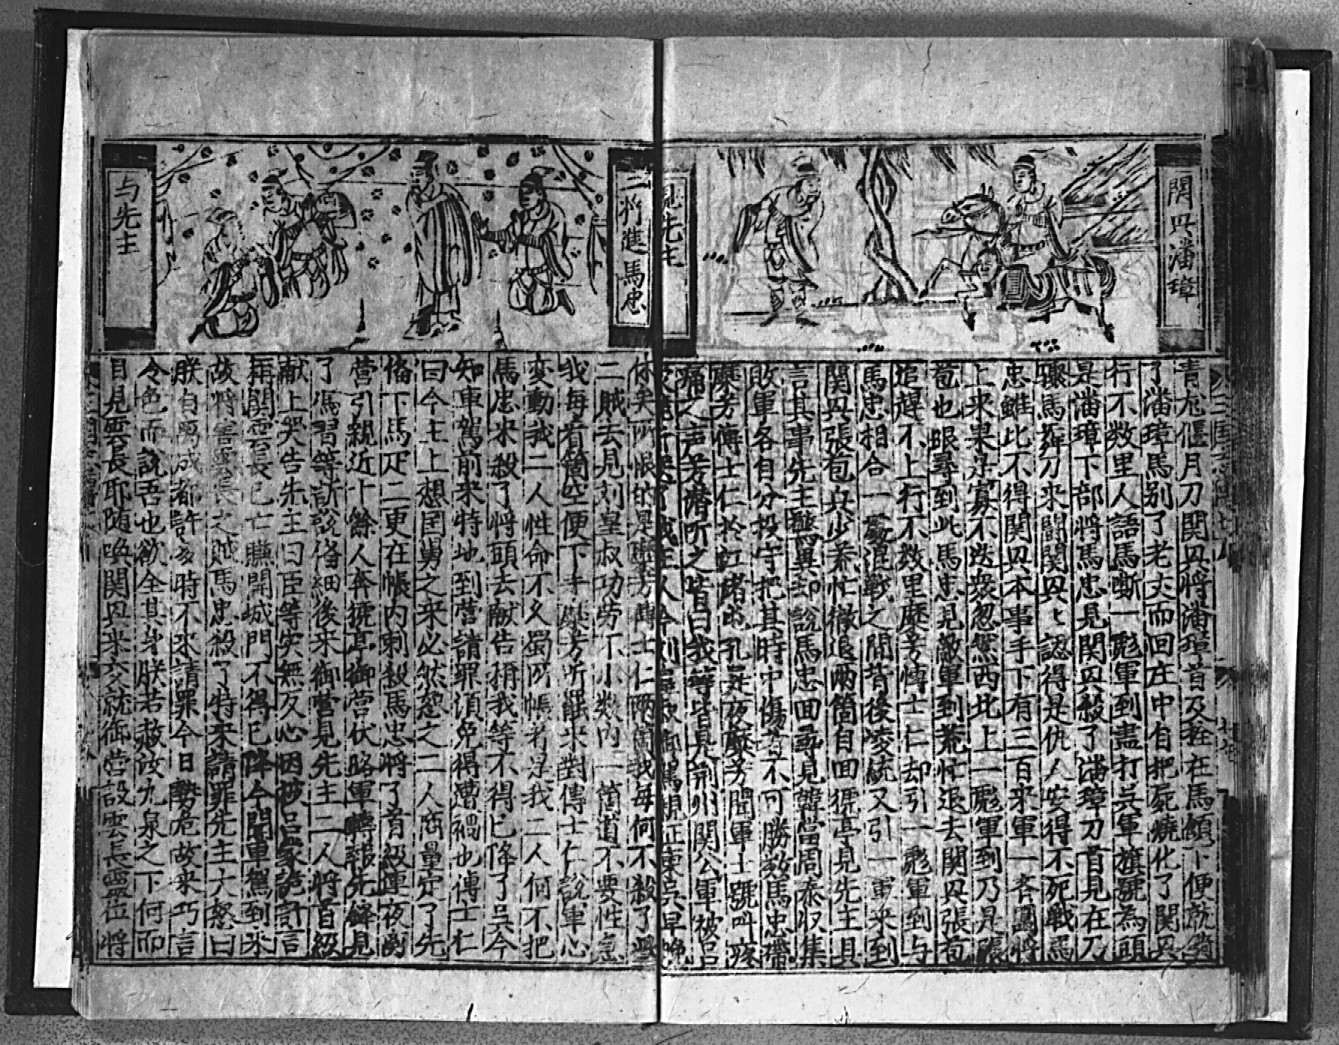 関興潘璋
見先主
青龙偃月刀関興将潘璋首及
了潘璋馬别了老丈而回庄中自把屍燒化了関興
行不数里人語馬嘶一彪軍到盡打吴軍旗號為頭
是潘璋下部将馬忠見関興殺了潘璋刀首見在刀
驟馬舞刀来闘関興興認得是仇人安得不死戰馬
忠雖比不得関興本事手下有三百来軍一齐
上来果是寡不迭衆忽然西北上一彪軍到乃是張
苞也跟尋到此馬忠見敵軍到荒忙退去関興張苞
追趕不上行不数里糜芳傅士仁却引一彪軍到与
馬忠相合一處混戰之間背後凌統又引一軍来到
関興張苞兵少荒忙徹退兩箇自回猇亭見先主具
言其事先主驚異却說馬忠回尋見韓當周泰収集
敗軍各自分投守把其時中傷者不可勝数馬忠帶
糜芳傅士仁於江渚屯扎是夜糜芳聞軍士號叫疼
痛之声芳潜所之皆曰我等皆是荆州関公軍被吕
二将進馬忠
与先主
二賊去見刘皇叔功劳不小数内一箇道不要性急
我每看箇空便下手糜芳听罷来對傅士仁說軍心
変動我二人性命不久蜀所恨者是我二人何不把
馬忠来殺了将頭去献告称我等不得已降了吴今
知車駕前来特地到营請罪湏免得遭禍也傅士仁
曰今主上想国舅之来必然之二人商量定了先
偹下馬疋二更在帳内刺殺馬忠将了首級連夜
营引親近十餘人奔猇亭御营伏路軍轉报先鋒見
了馮習等訴說偹細後来御营見先主二人将首級
献上哭告先主曰臣等实無反心因被吕蒙詭計言
称関雲長已亡賺開城門不得已降今聞車駕到来
故将害雲長之賊馬忠殺了特来請罪先主大怒曰
朕自离成都許多時不来請罪今日勢危故来巧言
令色而說吾也欲全其身朕若赦汝九泉之下何面
目見雲長耶随喚関興来交就御营設雲長靈位将